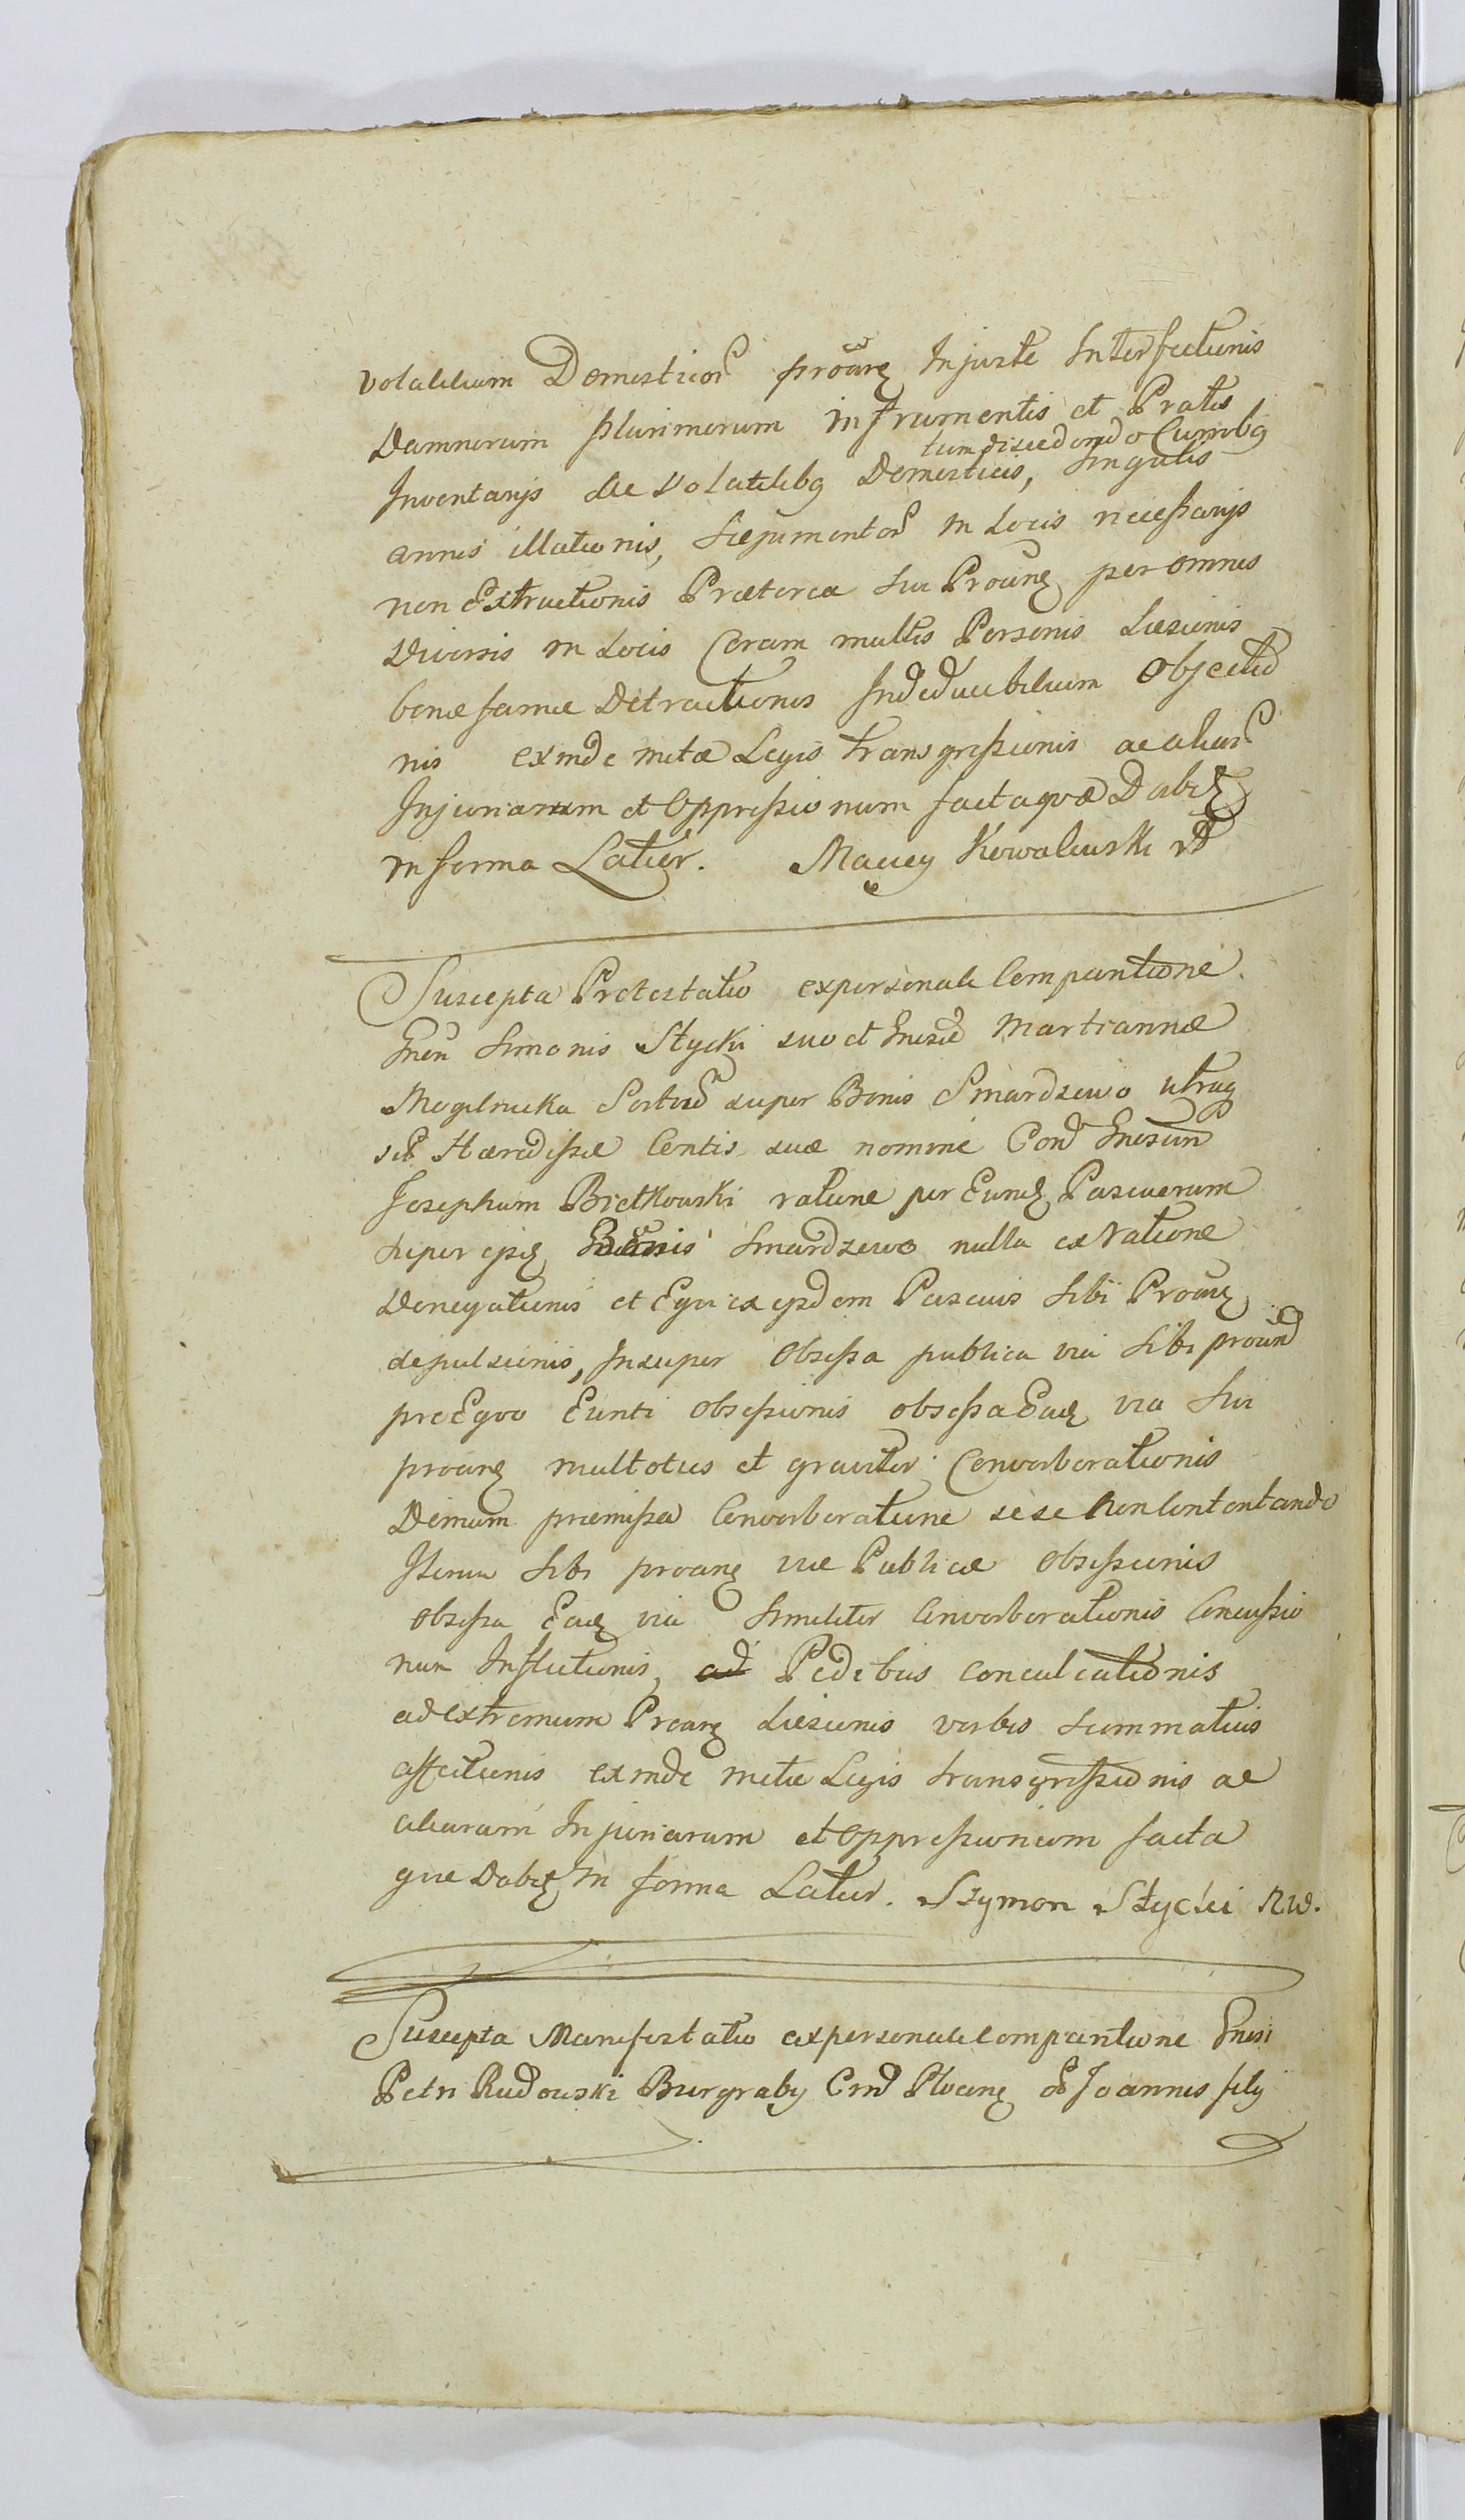 volatilium Domesticor proãng Injuste Interfectionis
Damnorum plurimorum in frumentis et Pratis
tum discedendo Cumobg
Inventarijs ac Volatilibg Domesticis, singulis
annis illationis, Sepimentor in Locis necessarijs
non Extructionis Præterea sui Proãng per omnes
Diversis in Locis Coram multis Personis Læsionis
bonæ famæ Detractionis Indeducibilium Objectio
nis exinde metæ Legis transgressionis ac aliar
Injuriarum et Oppressionum facta quæ Dabitz
in forma Latior. Maciey Kowalewski
Suscepta Protestatio ex personali Comparitione
Gnen Simonis Stycki suo et Gnesæ Martiannæ
Mogilnicka Sortis super Bonis Smardzewo utrag
sit Hæredissæ Contis suæ nomine Cond Gnesum
Josephum Bietkowski ratione per Eundz Pascuorum
super ipsis Bonis Smardzewo nulla ex Ratione
Denegationis et Equi ex ijsdem Pascuis sibi Proãng
depulsionis, Insuper Obsessa publica via sibi proãnd
pro Equo Eunti obsessionis obsessa Eadz via sui
proãng multoties et graviter Converberationis
Demum præmissa Converberatione sese Non Contentando
Iterum sibi proãng viæ Publicæ obsessionis
obsessa Eadz via Similiter Converberationis Concussio
num Inflictionis, ad Pedibus conculcationis
ad extremum Proãng Læsionis verbis summativis
affectionis exinde metæ Legis transgressionis ac
aliarum Injuriarum et Oppressionum facta
quæ Dabitz in forma Latior. Szymon Stycki
Suscepta Manifestatio ex personali comparitione Gnesi
Petri Rudowski Burgraby Crnd Plocang ol Joannis filij